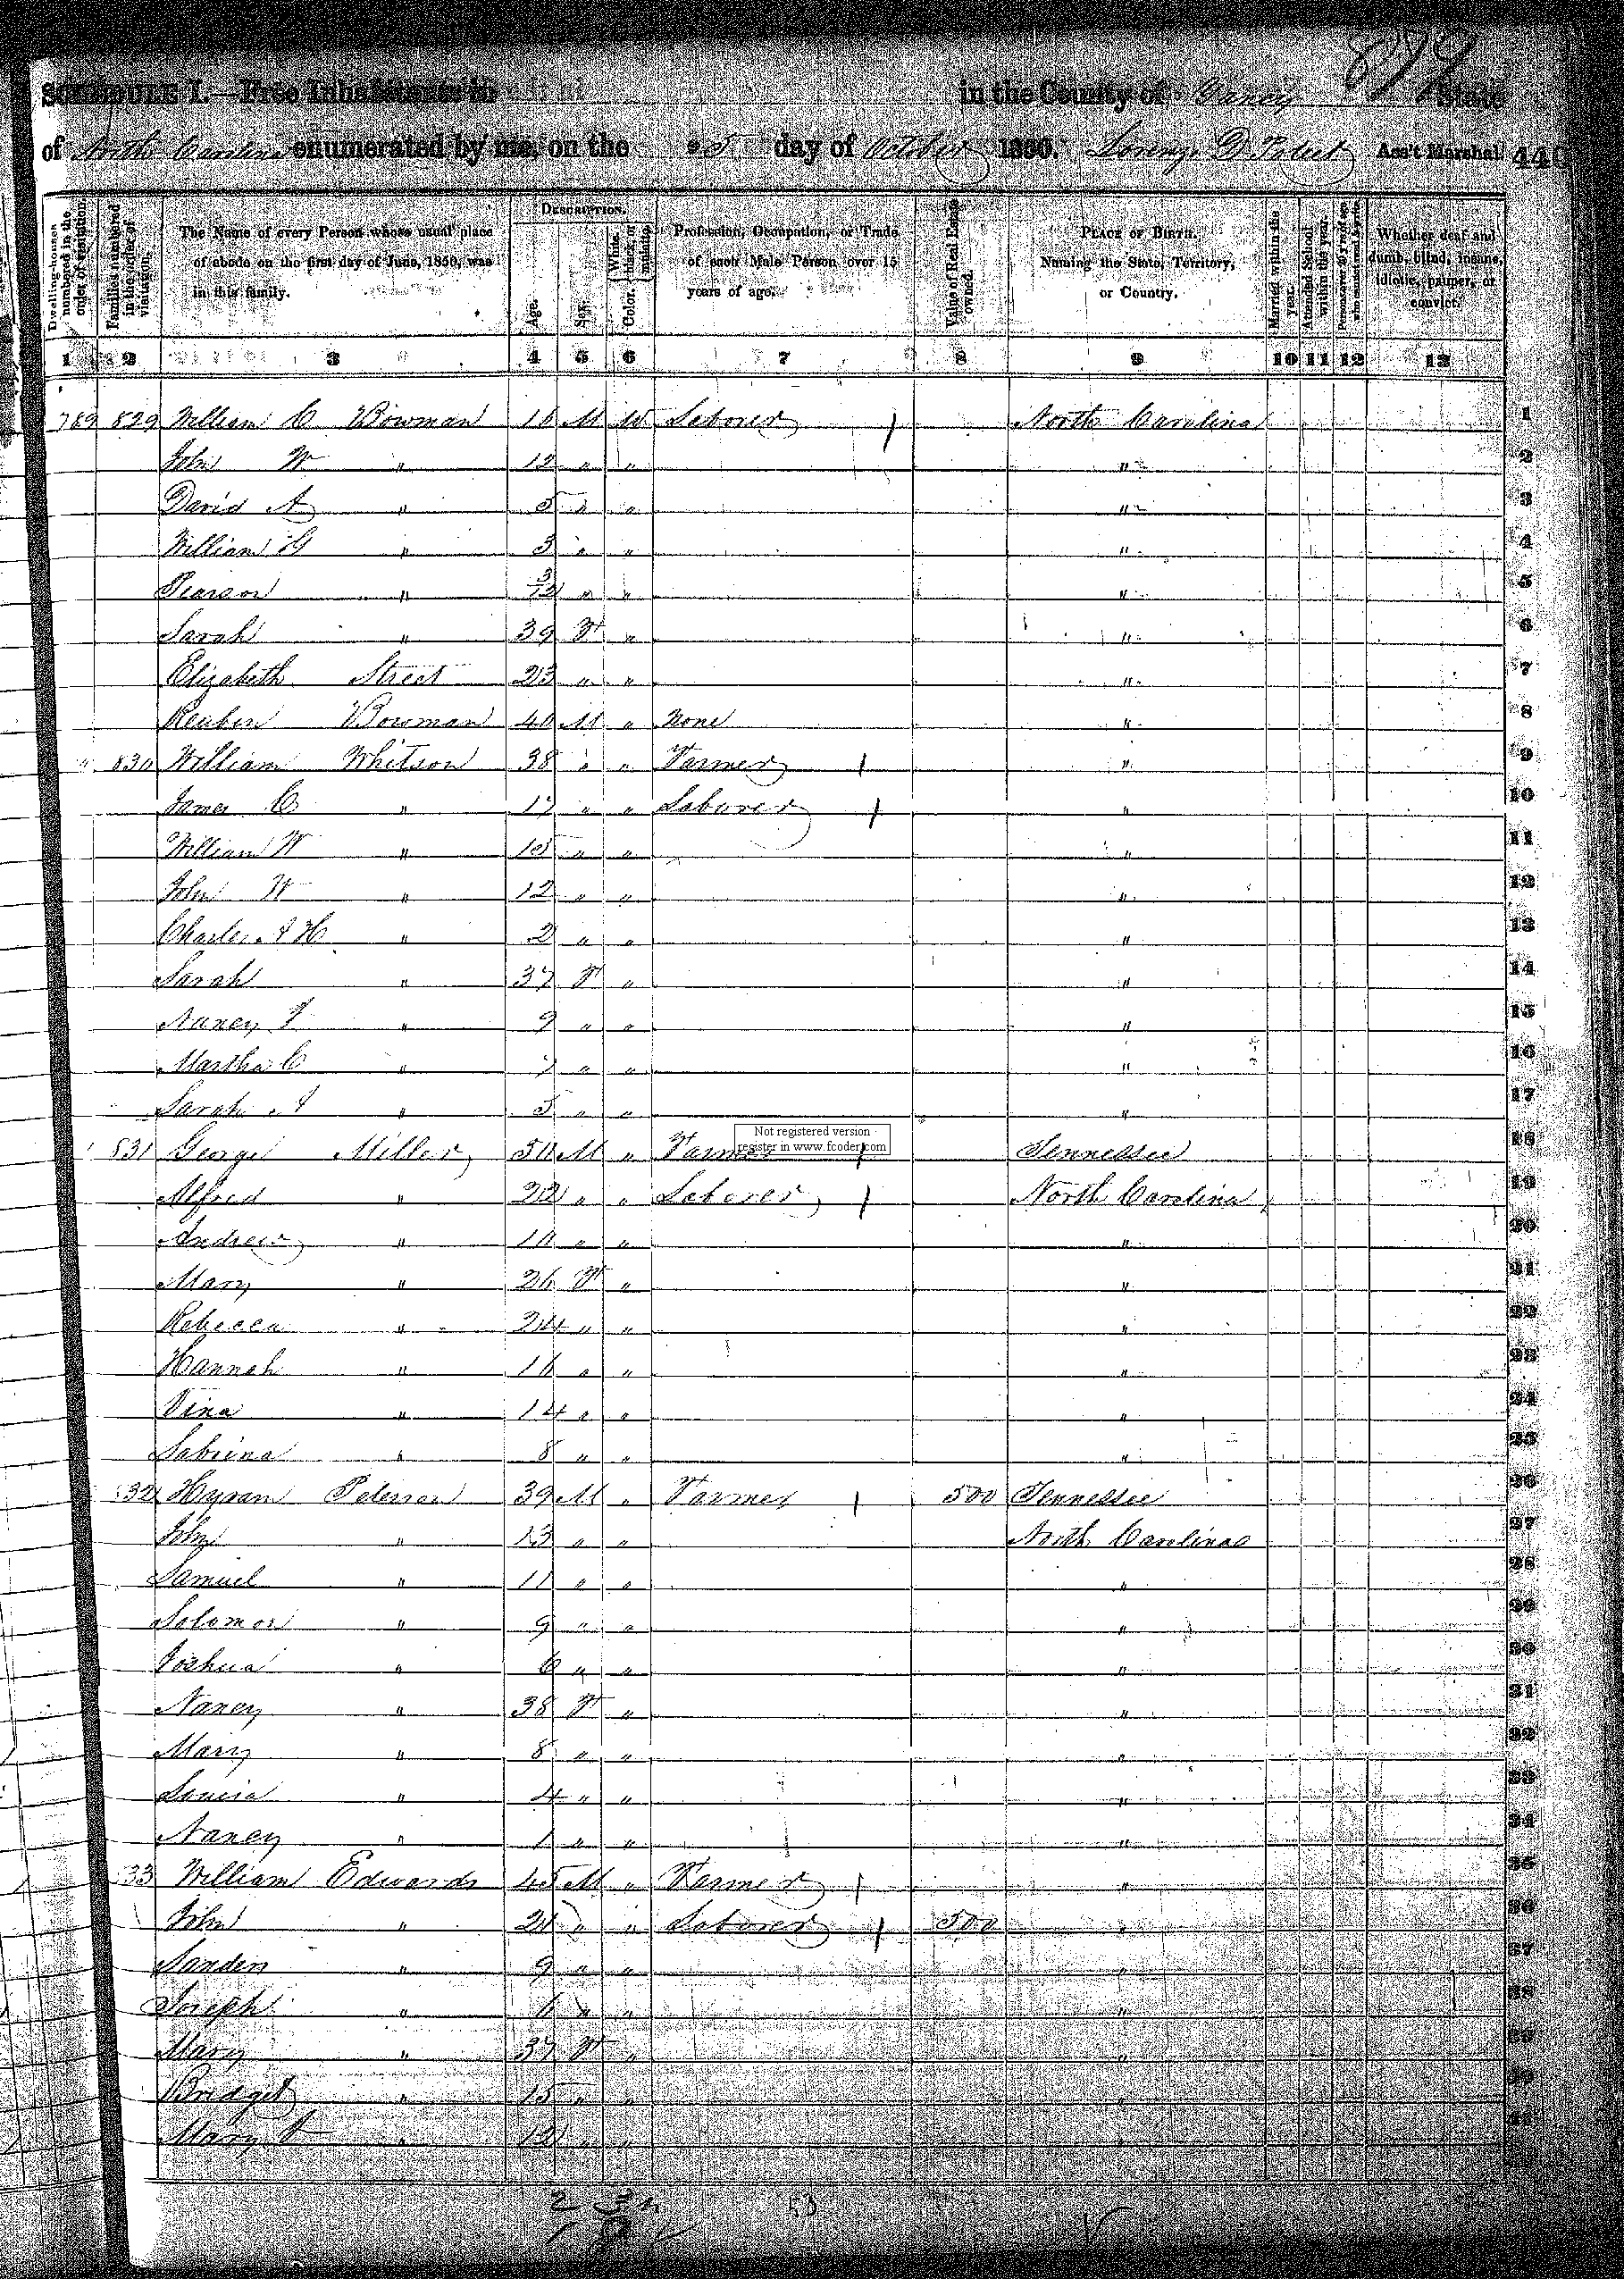 879
SCHEDULE I.—Free Inhabitants in in the County of Yancy State
of North Carolina enumerated by me, on the 5 day of October 1850. Lorenzo D Ass't Marshal. 440
Dwelling-houses numbered in the order of visitation.
Families numbered in the order of visitation.
The Name of every Person whose usual place of abode on the first day of June, 1850, was in this family.
DESCRIPTION.
Age.
Sex.
Color. White, black, or mulatto.
Profession, Occupation, or Trade of each Male Person over 15 years of age.
Value of Real Estate owned.
PLACE OF BIRTH. Naming the State, Territory, or Country.
Married within the year.
Attended School within the year.
Persons over 20 y'rs of age who cannot read & write.
Whether deaf and dumb, blind, insane, idiotic, pauper, or convict.
1 2 3 4 5 6 7 8 9 10 11 12 13
789 829 William C Bowman 16 M W Laborer North Carolina 1
John W " 12 " " " 2
David A " 5 " " " 3
William G " 3 " " " 4
Pearson " 3/12 " " " 5
Sarah " 39 F " " 6
Elizabeth Street 23 " " " 7
Reuben Bowman 40 M " None " 8
" 830 William Whitson 38 " " Farmer " 9
James C " 17 " " Laborer " 10
William W " 15 " " " 11
John W " 12 " " " 12
Charles A H " 2 " " " 13
Sarah " 37 F " " 14
Nancy " 9 " " " 15
Martha C " 7 " " " 16
Sarah A " 5 " " " 17
Not registered version
register in www.fcoder.com
831 George Miller 50 M " Farmer Tennessee 18
Alfred " 22 " " Laborer North Carolina 19
Andrew " 10 " " " 20
Mary " 26 F " " 21
Rebecca " 24 " " " 22
Hannah " 16 " " " 23
Vina " 14 " " " 24
Sabrina " 8 " " " 25
832 Hyram Peterson 39 M " Farmer 500 Tennessee 26
John " 13 " " North Carolina 27
Samuel " 11 " " " 28
Solomon " 9 " " " 29
Joshua " 6 " " " 30
Nancy " 38 F " " 31
Mary " 8 " " " 32
Louisa " 4 " " " 33
Nancy " 1 " " " 34
33 William Edwards 45 M " Farmer " 35
John " 21 " " Laborer 500 " 36
Sanders " 9 " " " 37
Joseph " 6 " " " 38
Mary " 37 F " " 39
Bridget " 15 " "
Mary " 12 " "